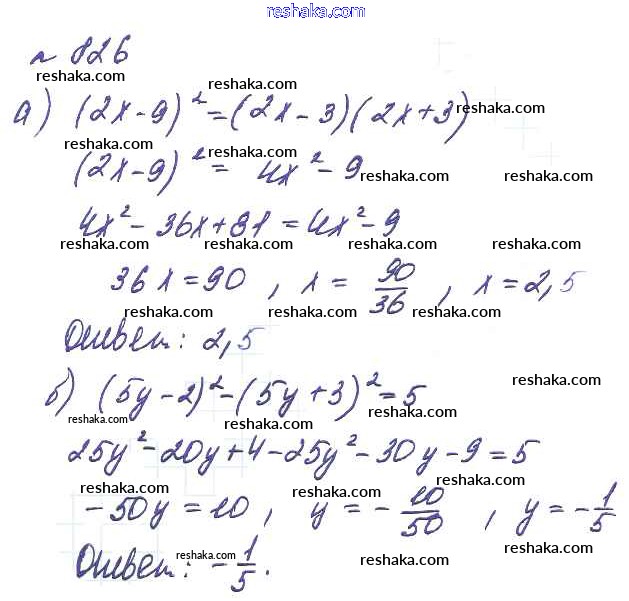 reshaka.com
№ 826
reshaka.com reshaka.com reshaka.com
а) (2x-9)² = (2x-3)(2x+3)
reshaka.com reshaka.com
(2x-9)² = 4x²-9
reshaka.com reshaka.com
4x²-36x+81=4x²-9
reshaka.com reshaka.com reshaka.com
36x=90, x = 90/36, x=2,5
reshaka.com reshaka.com reshaka.com
Ответ: 2,5
reshaka.com
б) (5y-2)²-(5y+3)²=5
reshaka.com reshaka.com
25y²-20y+4-25y²-30y-9=5
reshaka.com reshaka.com reshaka.com
-50y=10, y = -10/50, y=-1/5
reshaka.com reshaka.com reshaka.com
Ответ: -1/5.